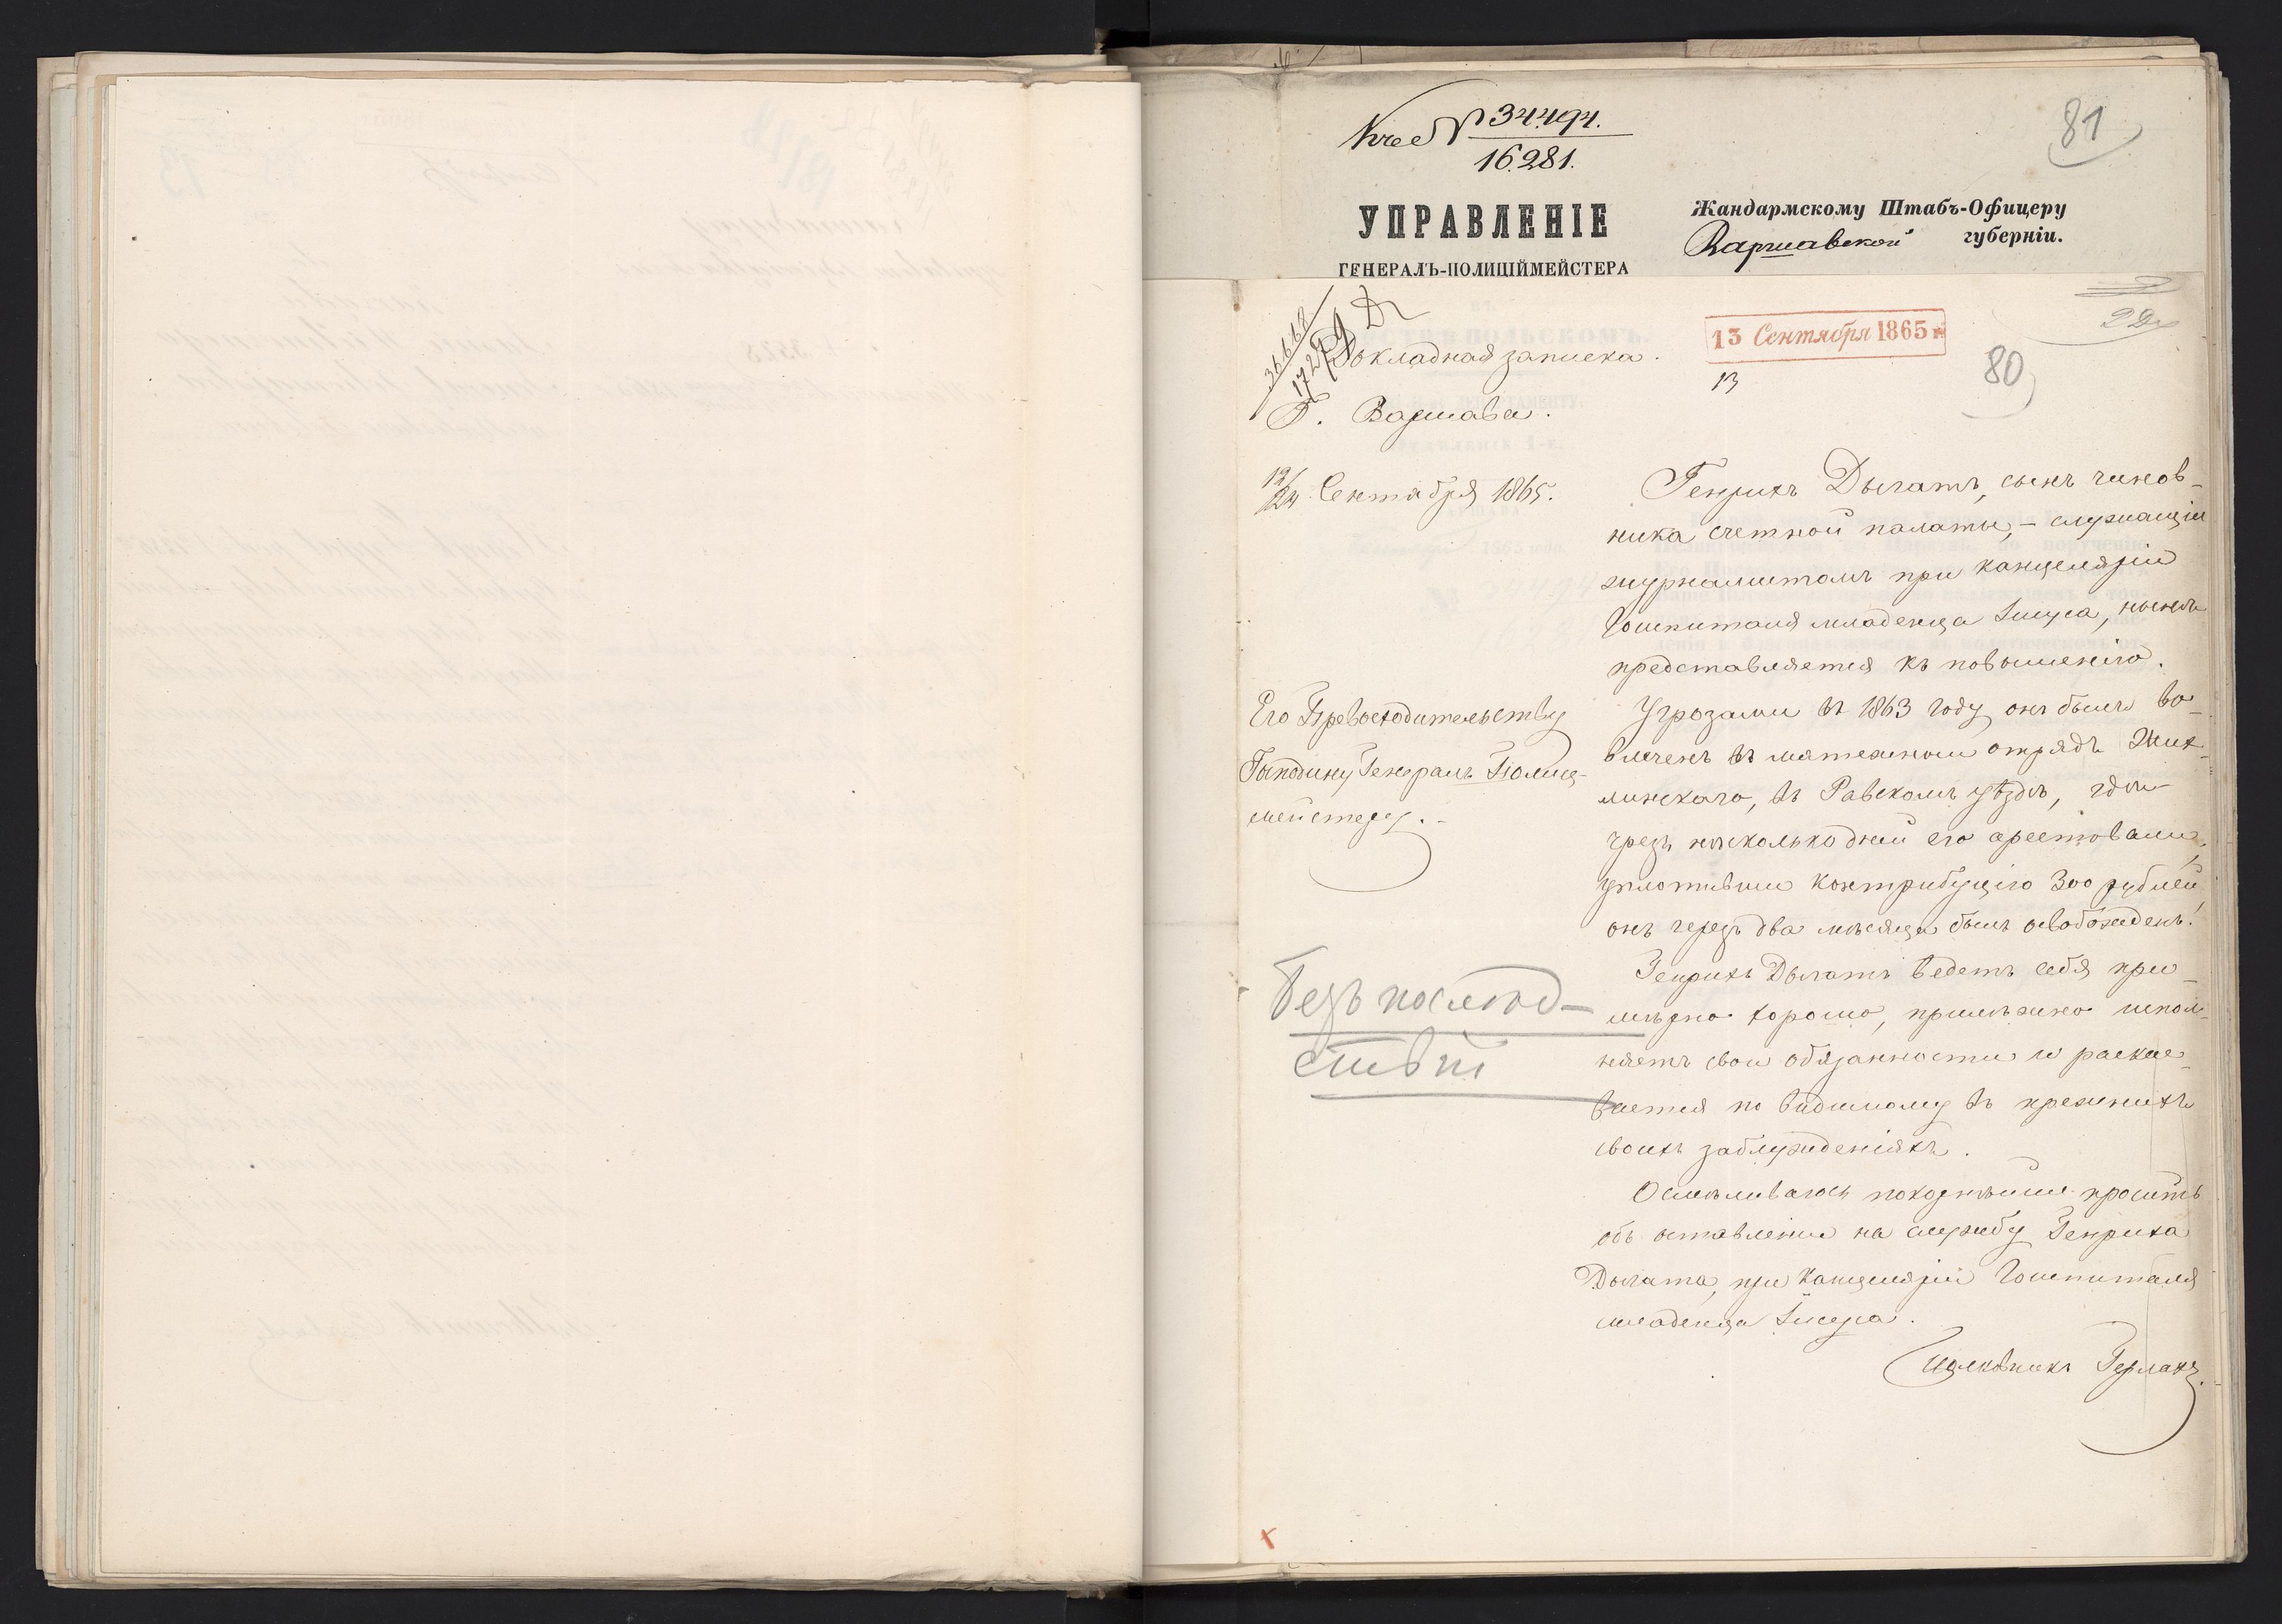 К № 34494.
16281.
81
УПРАВЛЕНІЕ
ГЕНЕРАЛЪ-ПОЛИЦІЙМЕЙСТЕРА
Жандармскому Штабъ-Офицеру
Варшавской губерніи.
36668
Докладная записка.
13 Сентября 1865 г.
13
80
Г. Варшава.
12/24 Сентября 1865.
Его Превосходительству
Господину Генералъ Полиц-
мейстеру.
Безъ послѣд-
ствій
Генрихъ Дыгатъ, сынъ чинов-
ника счетной палаты, – служащій
журналистомъ при канцеляріи
Госпиталя младенца Іисуса, нынѣ
представляется къ повышенію.
Угрозами въ 1863 году онъ былъ во-
влеченъ въ мятежный отрядъ Жих-
линскаго, въ Равскомъ уѣздѣ, гдѣ
чрезъ нѣсколько дней его арестовали,
уплативши контрибуцію 300 рублей,
онъ черезъ два мѣсяца былъ освобожденъ.
Генрихъ Дыгатъ ведетъ себя при-
мѣрно хорошо, прилѣжно испол-
няетъ свои обязанности и раскае-
вается по видимому въ прежнихъ
своихъ заблужденіяхъ.
Осмѣливаюсь покорнѣйше просить
объ оставленіи на службу Генриха
Дыгата, при Канцеляріи Госпиталя
младенца Іисуса.
Полковникъ Герлахъ.